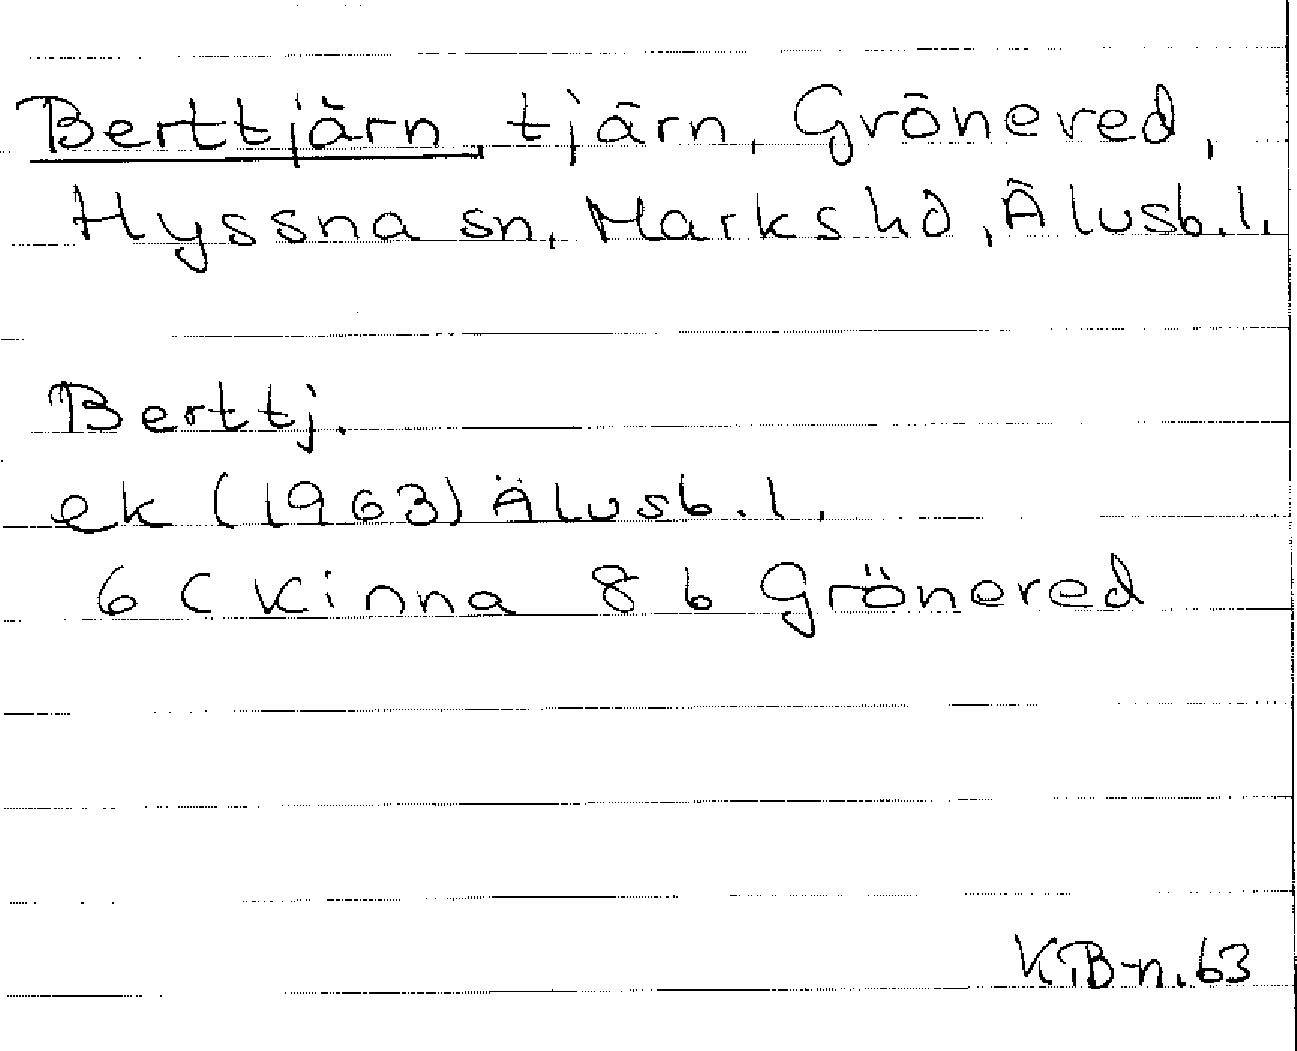 Berttjärn, tjärn, Grönered,
Hyssna sn, Marks hd, Älvsb. l.
Berttj.
ek (1963) Älvsb. l.
6 C Kinna 8 b Grönered
KB-n. 63